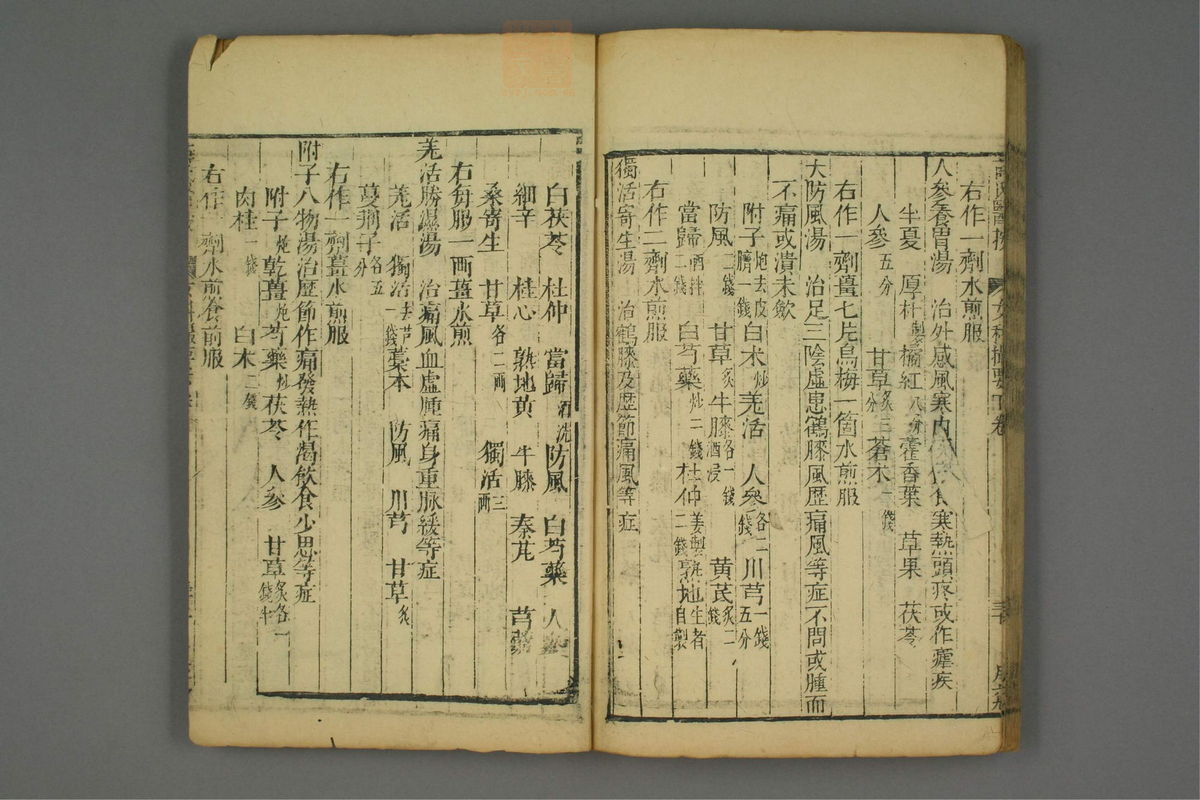 右作一劑水煎服
人參養胃湯 治外感風寒內 食寒熱頭疼或作瘧疾
半夏 厚朴製 橘紅八分 藿香葉 草果 茯苓
人參五分 甘草炙三分 蒼朮一錢
右作一劑薑七片烏梅一箇水煎服
大防風湯 治足三陰虛患鶴膝風歷痛風等症不問或腫而
不痛或潰未歛
附子炮去皮臍一錢 白朮炒 羌活 人參各二錢 川芎一錢五分
防風二錢 甘草炙 牛膝各一錢酒浸 黃芪炙二錢
當歸酒拌二錢 白芍藥炒二錢 杜仲姜製二錢 熟地生者自製
右作二劑水煎服
獨活寄生湯 治鶴膝及歷節痛風等症
白茯苓 杜仲 當歸酒洗 防風 白芍藥 人參
細辛 桂心 熟地黃 牛膝 秦芃 芎藭
桑寄生 甘草各二兩 獨活三兩
右每服一兩薑水煎
羌活勝濕湯 治痛風血虛腫痛身重脉緩等症
羌活 獨活去芦一錢 藁本 防風 川芎 甘草炙
蔓荊子各五分
右作一劑薑水煎服
附子八物湯治歷節作痛發熱作渴飲食少思等症
附子炮 乾薑炮 芍藥炒 茯苓 人參 甘草炙各一錢半
肉桂一錢 白朮二錢
右作一劑水煎食前服